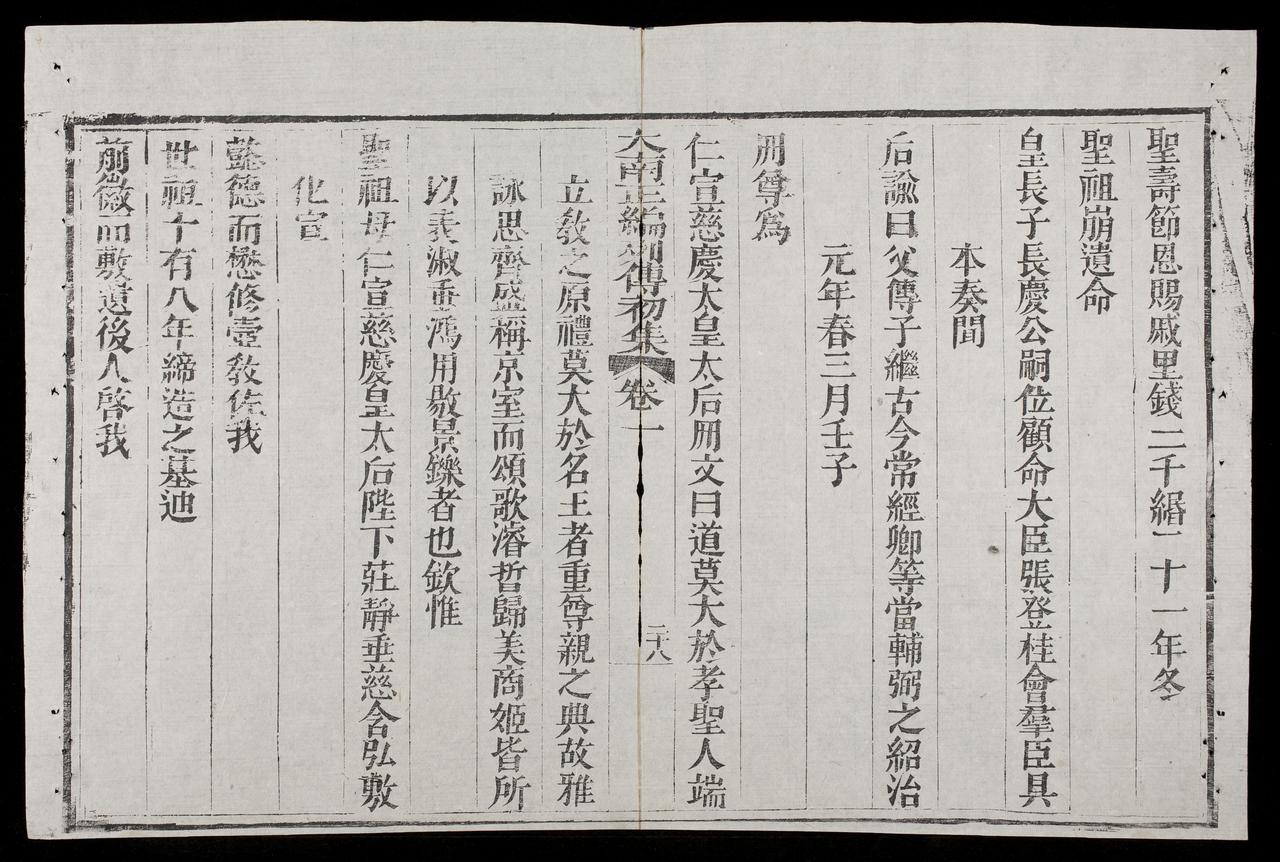 聖壽節恩賜戚里錢二千緡二十一年冬
聖祖崩遺命
皇長子長慶公嗣位顧命大臣張登桂會羣臣具
本奏聞
后諭曰父傳子繼古今常經卿等當輔弼之紹治
元年春三月壬子
冊尊爲
仁宣慈慶太皇太后冊文曰道莫大於孝聖人端
大南正編列傳初集 卷一 二十八
立敎之原禮莫大於名王者重尊親之典故雅
詠思齊盛稱京室而頌歌濬哲歸美商姬皆所
以表淑垂鴻用敭景鑠者也欽惟
聖祖母仁宣慈慶皇太后陛下莊靜垂慈含弘敷
化宣
懿德而懋修壼敎佐我
世祖十有八年締造之基迪
前徽而敷遺後人啓我